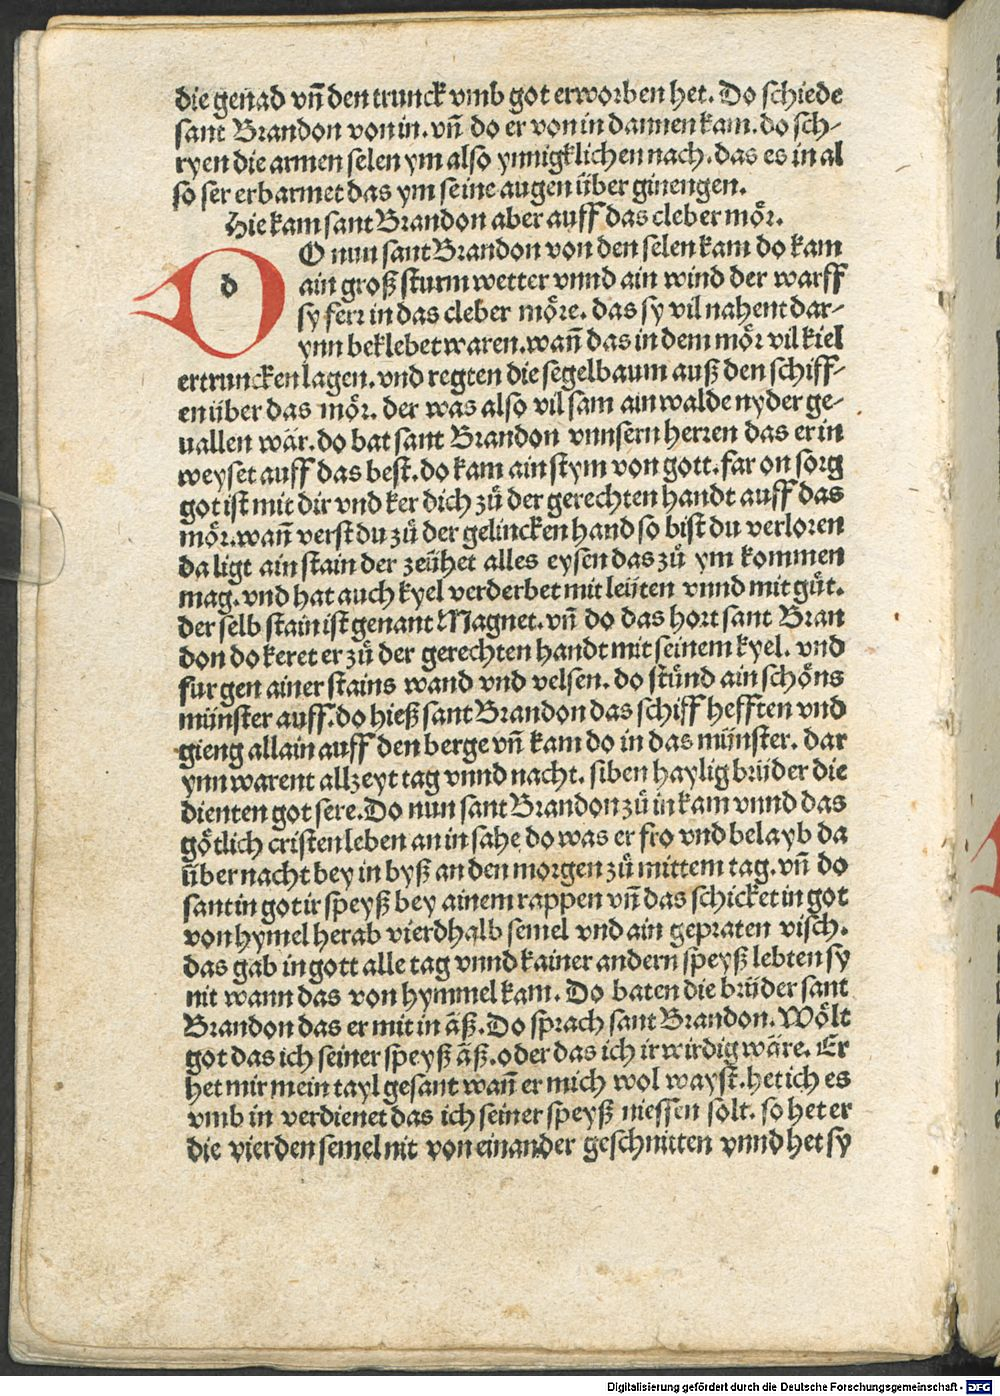 die genad vñ den trunck vmb got erworben het. Do schiede
sant Brandon von in. vñ do er von in dannen kam. do sch-
ryen die armen selen ym also ynnigklichen nach. das es in al
so ser erbarmet das ym seine augen über giengen.
Hie kam sant Brandon aber auff das cleber mör.
dO nun sant Brandon von den selen kam do kam
ain groß sturm wetter vnnd ain wind der warff
sy ferr in das cleber möre. das sy vil nahent dar-
ynn beklebet waren. wañ das in dem mör vil kiel
ertruncken lagen. vnd regten die segelbaum auß den schiff-
en über das mör. der was also vil sam ain walde nyder ge-
uallen wär. do bat sant Brandon vnnsern herren das er in
weyset auff das best. do kam ain stym von gott. far on sorg
got ist mit dir vnd ker dich zů der gerechten handt auff das
mör. wañ verst du zů der gelincken hand so bist du verloren
da ligt ain stain der zeühet alles eysen das zů ym kommen
mag. vnd hat auch kyel verderbet mit leüten vnnd mit gůt.
der selb stain ist genant Magnet. vñ do das hort sant Bran
don do keret er zů der gerechten handt mit seinem kyel. vnd
fur gen ainer stains wand vnd velsen. do stůnd ain schöns
münster auff. do hieß sant Brandon das schiff hefften vnd
gieng allain auff den berge vñ kam do in das münster. dar
ynn warent allzeyt tag vnnd nacht. siben haylig brüder die
dienten got sere. Do nun sant Brandon zů in kam vnnd das
götlich cristen leben an in sahe do was er fro vnd belayb da
über nacht bey in byß an den morgen zů mittem tag. vñ do
sant in got ir speyß bey ainem rappen vñ das schicket in got
von hymel herab vierdhalb semel vnd ain gepraten visch.
das gab in gott alle tag vnnd kainer andern speyß lebten sy
nit wann das von hymmel kam. Do baten die brüder sant
Brandon das er mit in äß. Do sprach sant Brandon. Wölt
got das ich seiner speyß äß. oder das ich ir wirdig wäre. Er
het mir mein tayl gesant wañ er mich wol wayst. het ich es
vmb in verdienet das ich seiner speyß niessen solt. so het er
die vierden semel nit von einander geschnitten vnnd het sy
Digitalisierung gefördert durch die Deutsche Forschungsgemeinschaft - DFG